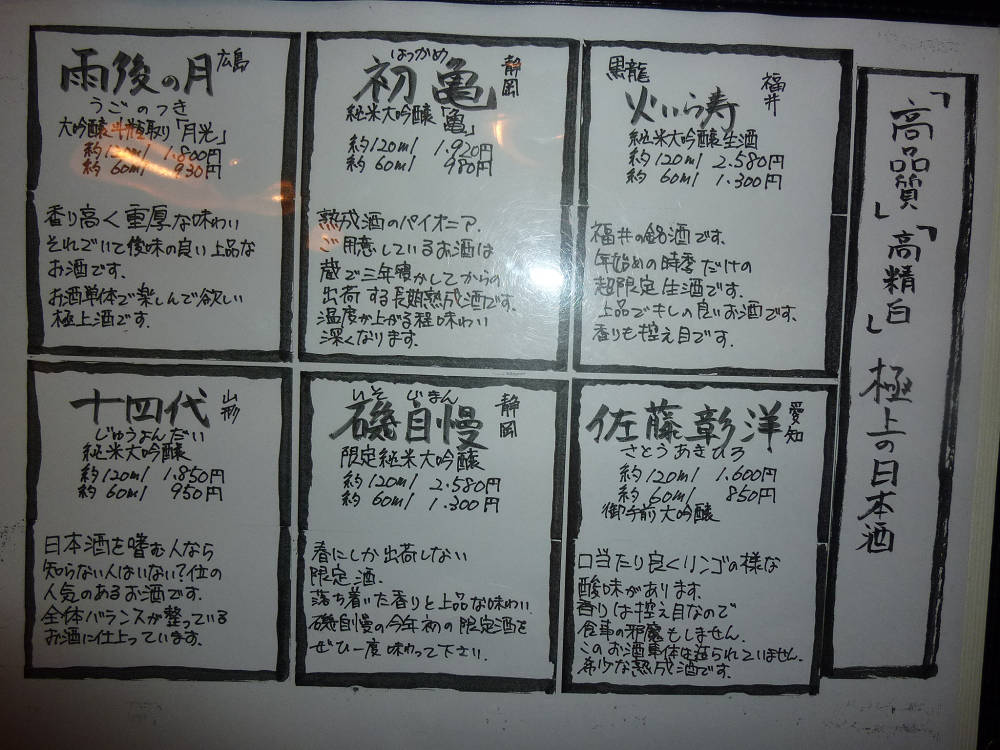 「高品質」「高精白」極上の日本酒
黒龍
福井
火いら寿
純米大吟醸生酒
約120ml 2.580円
約 60ml 1.300円
福井の銘酒です。
年始めの時季だけの
超限定生酒です。
上品でキレの良いお酒です、
香りも控え目です。
はつかめ
初亀
静岡
純米大吟醸「亀」
約120ml 1.920円
約 60ml 980円
熟成酒のパイオニア、
ご用意しているお酒は
蔵で三年寝かしてからの
出荷する長期熟成酒です。
温度が上がる程味わい
深くなります。
雨後の月
広島
うごのつき
大吟醸斗瓶取り「月光」
約120ml 1.800円
約 60ml 930円
香り高く重厚な味わい
それでいて後味の良い上品な
お酒です。
お酒単体で楽しんで欲しい
極上酒です。
佐藤彰洋
愛知
さとうあきひろ
約120ml 1.600円
約 60ml 850円
御手前大吟醸
口当たり良くリンゴの様な
酸味があります。
香りは控え目なので
食事の邪魔もしません。
このお酒単体は造られていません。
希少な熟成酒です。
いそじまん
磯自慢
静岡
限定純米大吟醸
約120ml 2.580円
約 60ml 1.300円
春にしか出荷しない
限定酒。
落ち着いた香りと上品な味わい、
磯自慢の今年初の限定酒を
ぜひ一度味わって下さい。
十四代
山形
じゅうよんだい
純米大吟醸
約120ml 1.850円
約 60ml 950円
日本酒を嗜む人なら
知らない人はいない?位の
人気のあるお酒です。
全体バランスが整っている
お酒に仕上っています。